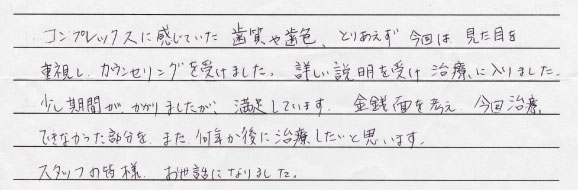 コンプレックスに感じていた 歯質や歯色、とりあえず 今回は 見た目を
重視し、カウンセリングを受けました。詳しい説明を受け 治療に入りました。
少し期間が かかりましたが、満足しています。金銭面を考え、今回治療
できなかった部分を、また 何年か後に治療したいと思います。
スタッフの皆様、お世話になりました。